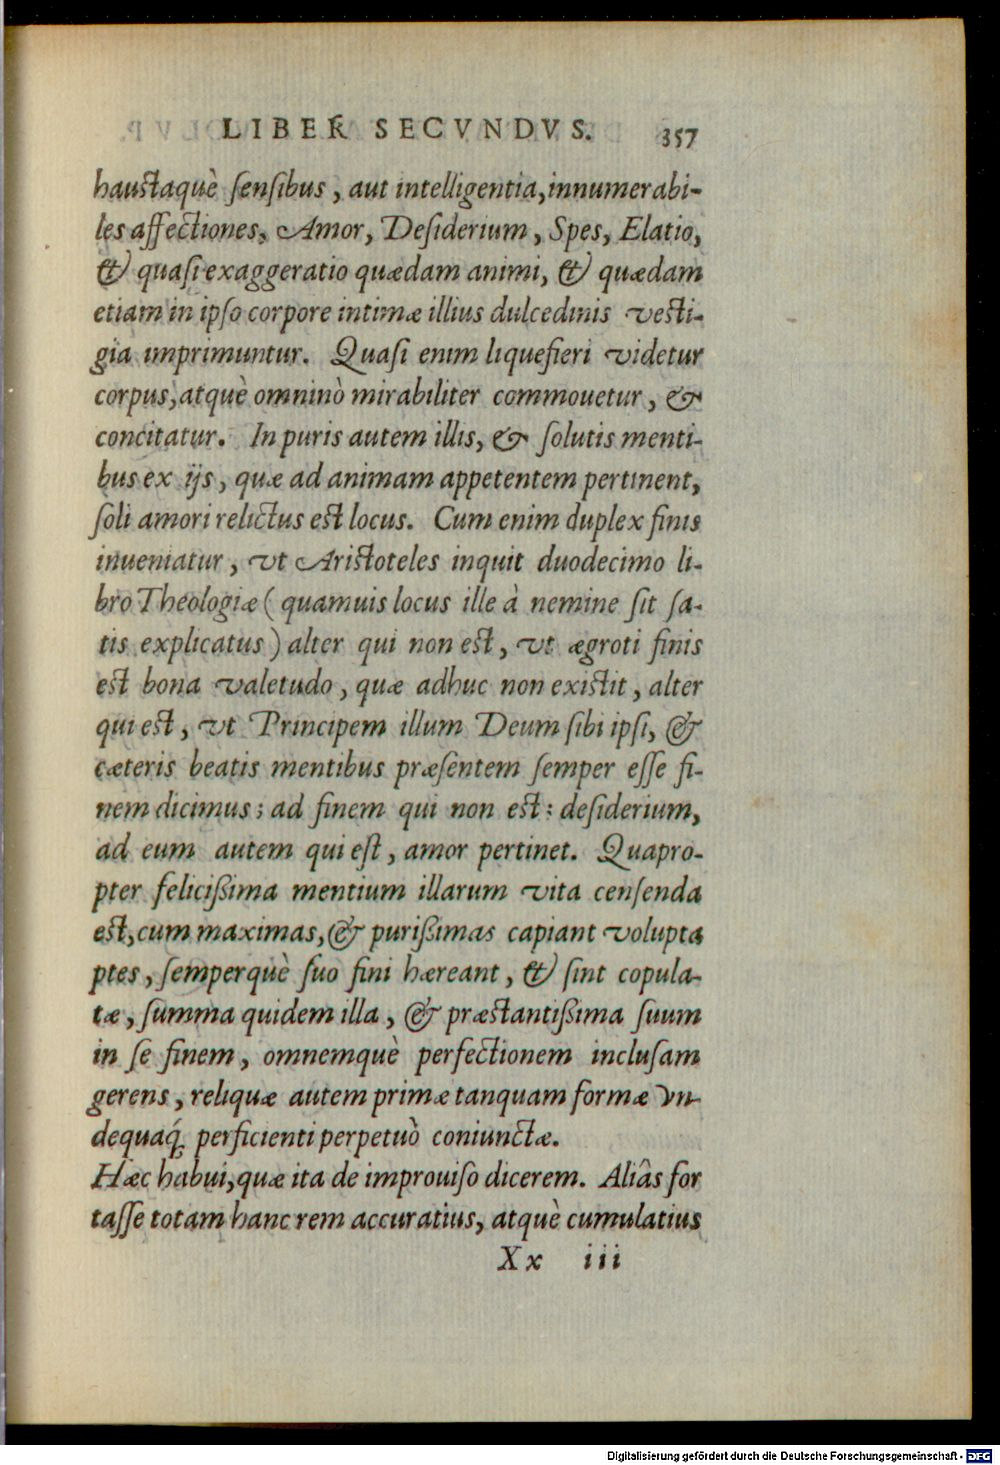 LIBER SECVNDVS. 357
haustaquè sensibus, aut intelligentia, innumerabi-
les affectiones, Amor, Desiderium, Spes, Elatio,
& quasi exaggeratio quædam animi, & quædam
etiam in ipso corpore intimæ illius dulcedinis vesti-
gia imprimuntur. Quasi enim liquefieri videtur
corpus, atquè omninò mirabiliter commouetur, &
concitatur. In puris autem illis, & solutis menti-
bus ex ijs, quæ ad animam appetentem pertinent,
soli amori relictus est locus. Cum enim duplex finis
inueniatur, vt Aristoteles inquit duodecimo li-
bro Theologiæ ( quamuis locus ille à nemine sit sa-
tis explicatus ) alter qui non est, vt ægroti finis
est bona valetudo, quæ adhuc non existit, alter
qui est, vt Principem illum Deum sibi ipsi, &
cæteris beatis mentibus præsentem semper esse fi-
nem dicimus; ad finem qui non est: desiderium,
ad eum autem qui est, amor pertinet. Quapro-
pter felicißima mentium illarum vita censenda
est, cum maximas, & purißimas capiant volupta
ptes, semperquè suo fini hæreant, & sint copula-
tæ, summa quidem illa, & præstantißima suum
in se finem, omnemquè perfectionem inclusam
gerens, reliquæ autem primæ tanquam formæ vn-
dequaq́; perficienti perpetuò coniunctæ.
Hæc habui, quæ ita de improuiso dicerem. Aliâs for
tasse totam hanc rem accuratius, atquè cumulatius
Xx iii
Digitalisierung gefördert durch die Deutsche Forschungsgemeinschaft - DFG